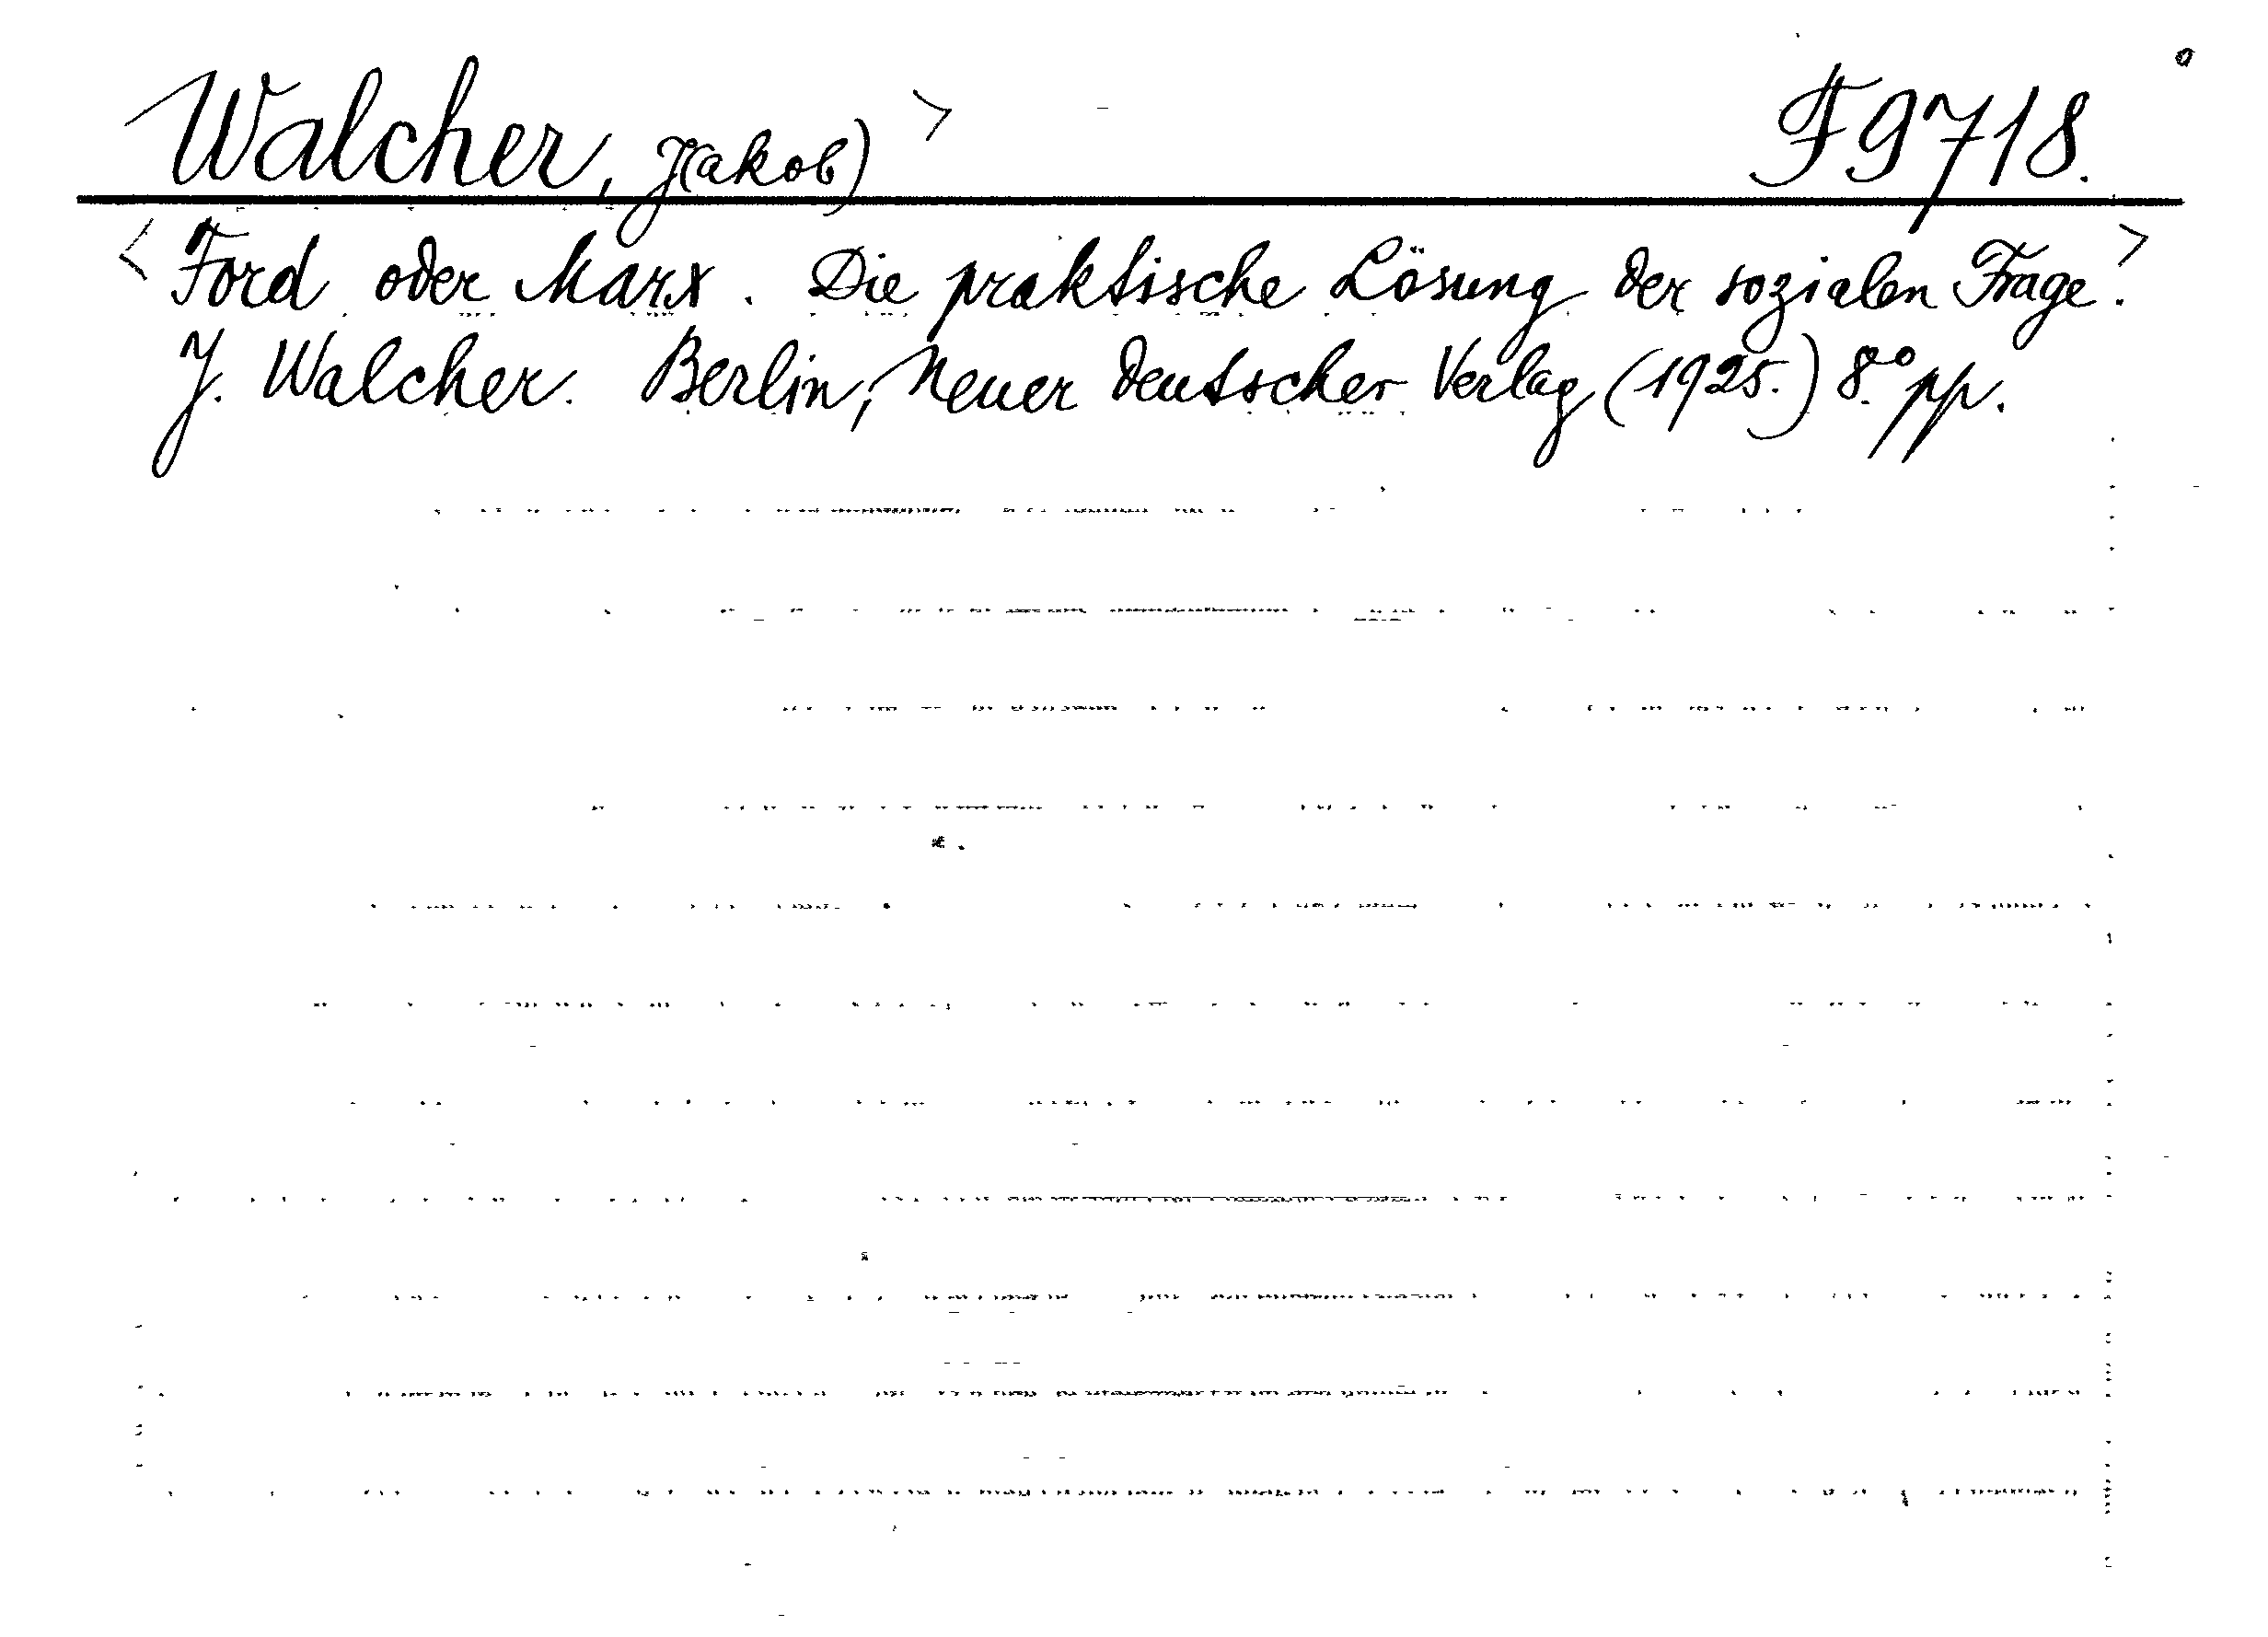 Walcher, J(akob) > F9718.
< Ford oder Marx. Die praktische Lösung der sozialen Frage. >
J. Walcher. Berlin, Neuer deutscher Verlag (1925.) 8.° pp.